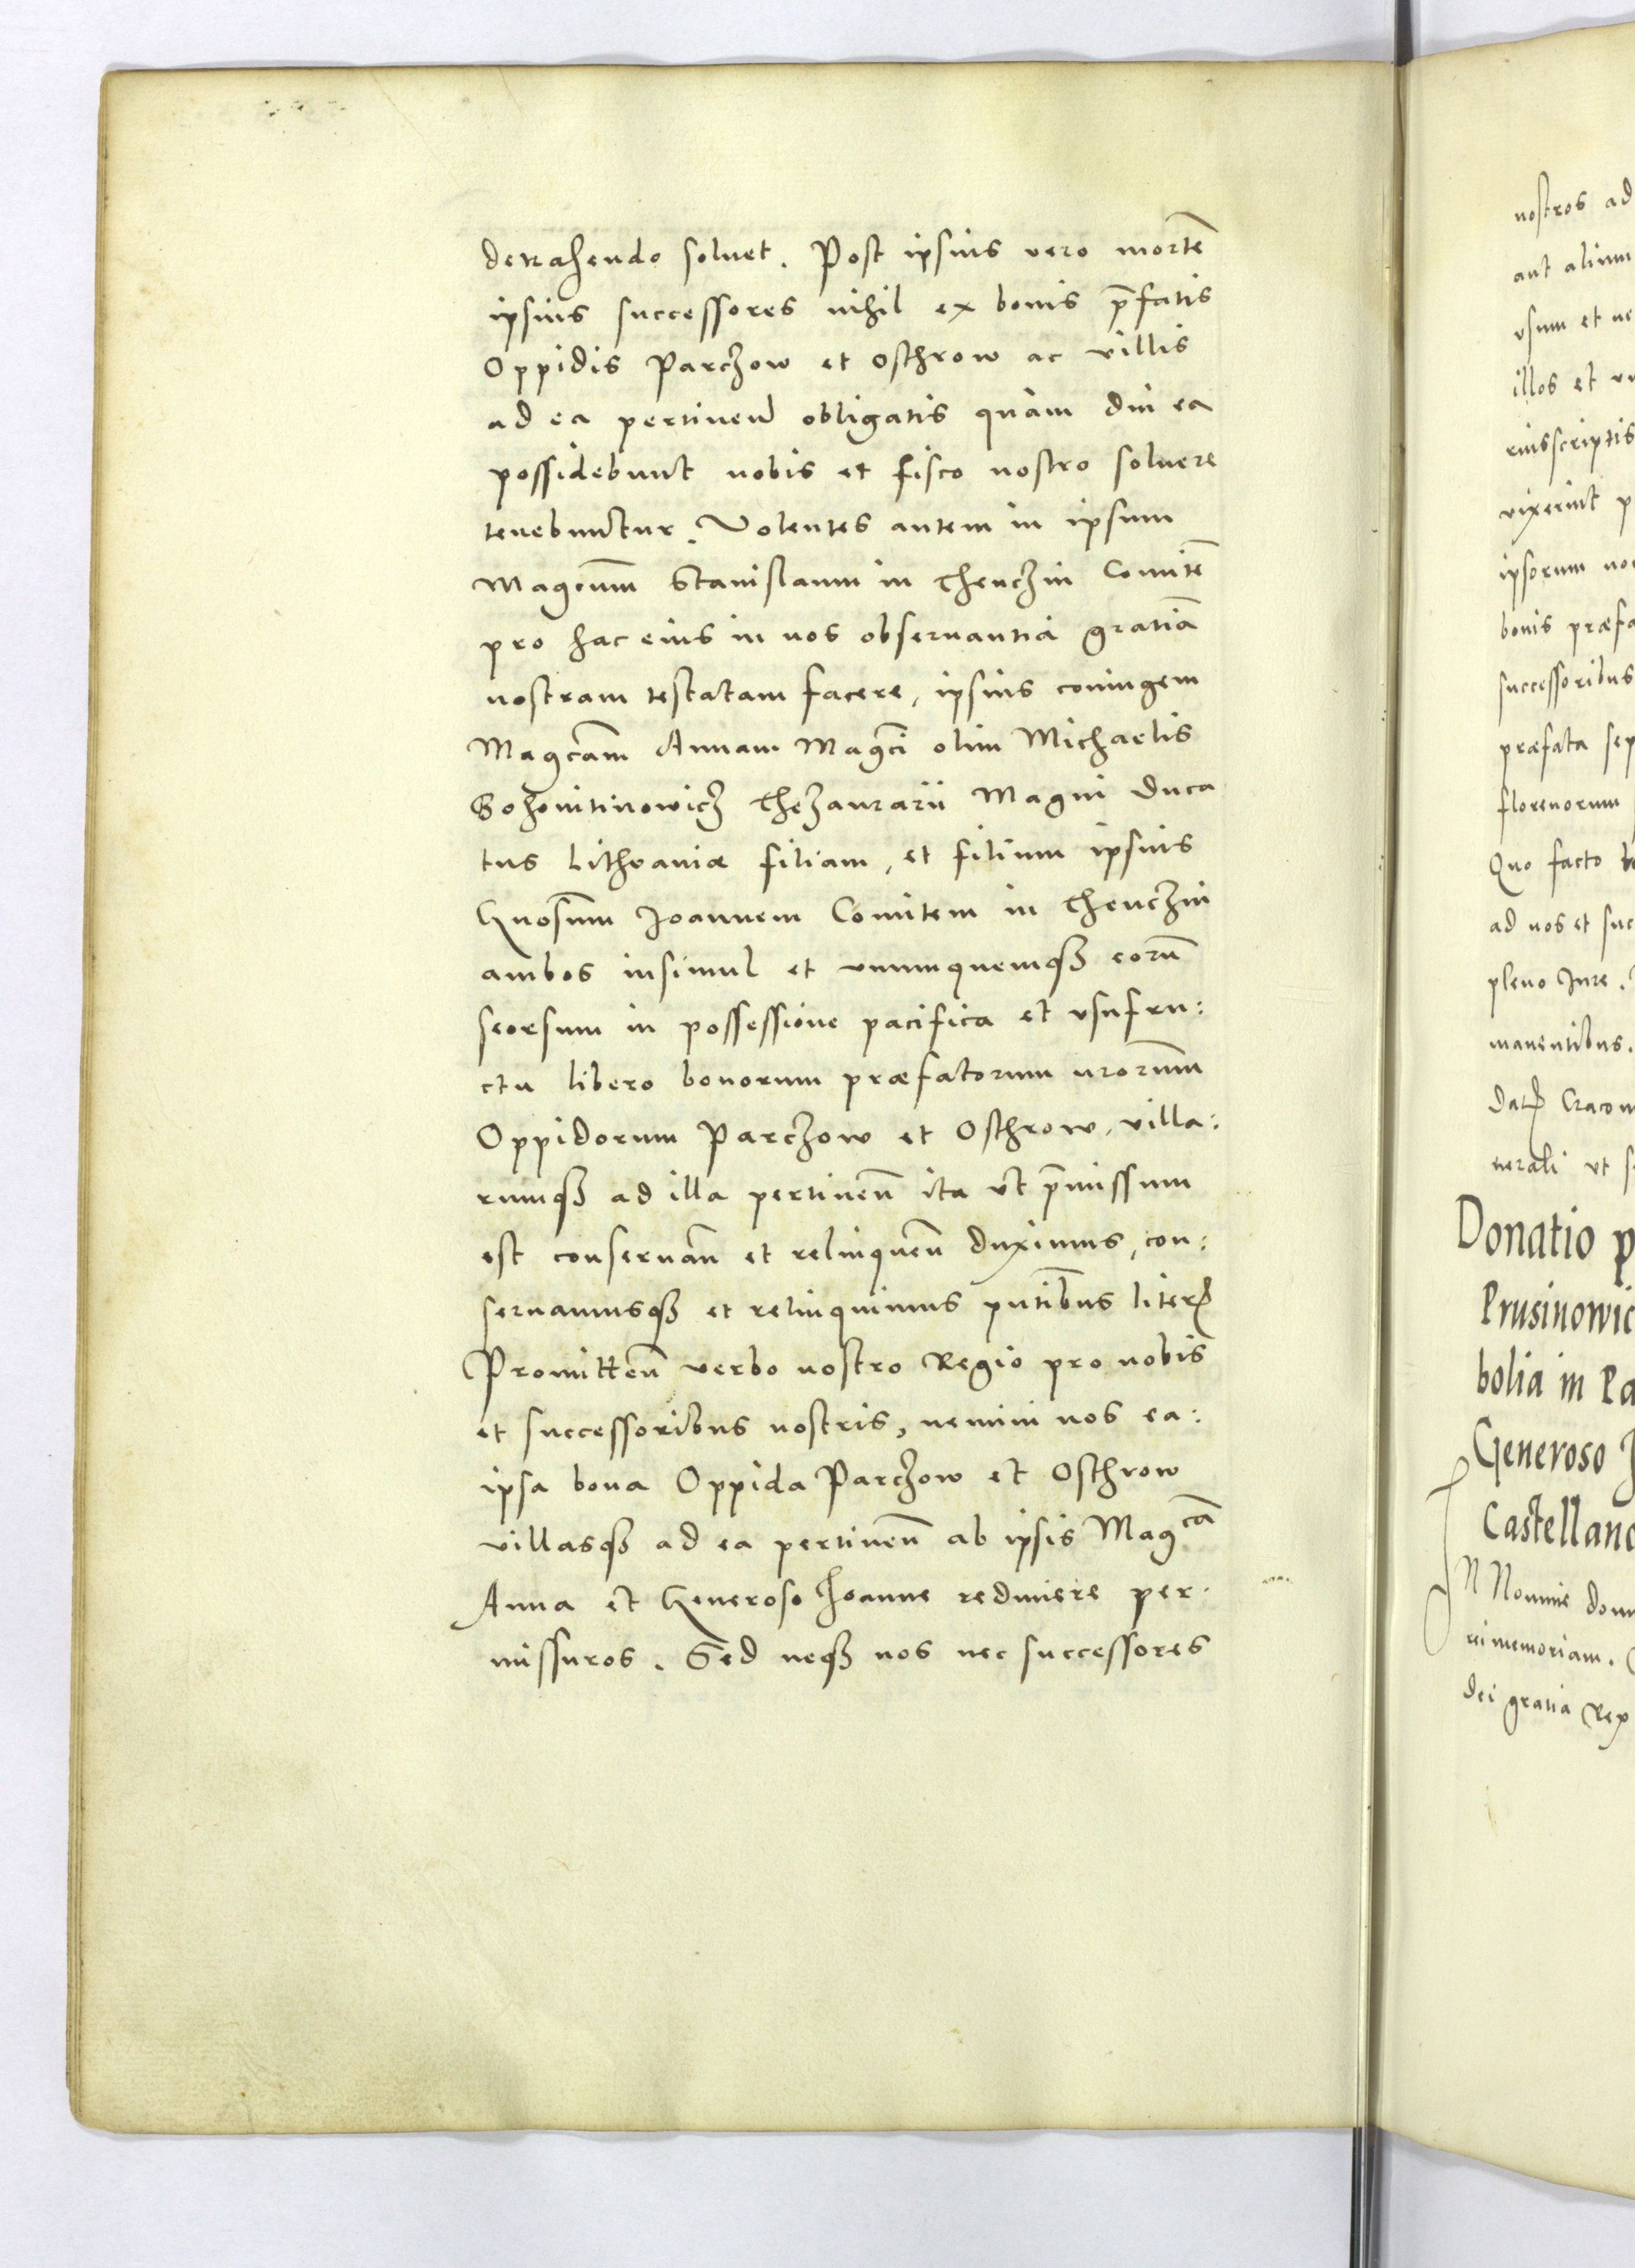 detrahendo soluet. Post ipsius vero mortē
ipsius successores nihil ex bonis p̄fatis
Oppidis Parczow et Osthrow ac villis
ad ea pertinen̄ obligatis quàm diu ea
possidebunt nobis et fisco nostro soluere
tenebuntur. Volentes autem in ipsum
Magcum̄ Stanislaum in Thenczin Comitē
pro hac eius in nos obseruantia gratiā
nostram testatam facere, ipsius coniugem
Magcam̄ Annam Magci olim Michaelis
Thezaurarii Magni Duca
tus Lithvaniæ filiam, et filium ipsius
Gnosum̄ Joannem Comitem in Thenczin
ambos insimul et vnumquemqꝫ eorū
seorsum in possessione pacifica et vsufru:
ctu libero bonorum præfatorum nrorum̄
Oppidorum Parczow et Osthrow, villa:
rumqꝫ ad illa pertinen̄ ita vt p̄missum
est conseruan̄ et relinquen̄ duximus, con:
seruamusqꝫ et relinquimus pntibus̄ literꝭ
Promitten̄ verbo nostro Regio pro nobis
et successoribus nostris, nemini nos ea:
ipsa bona Oppida Parczow et Osthrow
villasqꝫ ad ea pertinen̄ ab ipsis Magcā
Anna et Generoso Joanne redimere per:
missuros. Sed neqꝫ nos nec successores
nostros ad
aut alium
vsum et ne
illos et
vixerint p
ipsorum
bonis præfa
successoribus
præfata sep
florenorum
Quo facto
ad nos et suc
pleno Jure.
manentibus.
Datꝭ Cracou
nerali vt s
Donatio p
Prusinowic
bolia in Pa
Generoso J
Castellano
In Nomine dom
ei memoriam.
dei gratia Rex